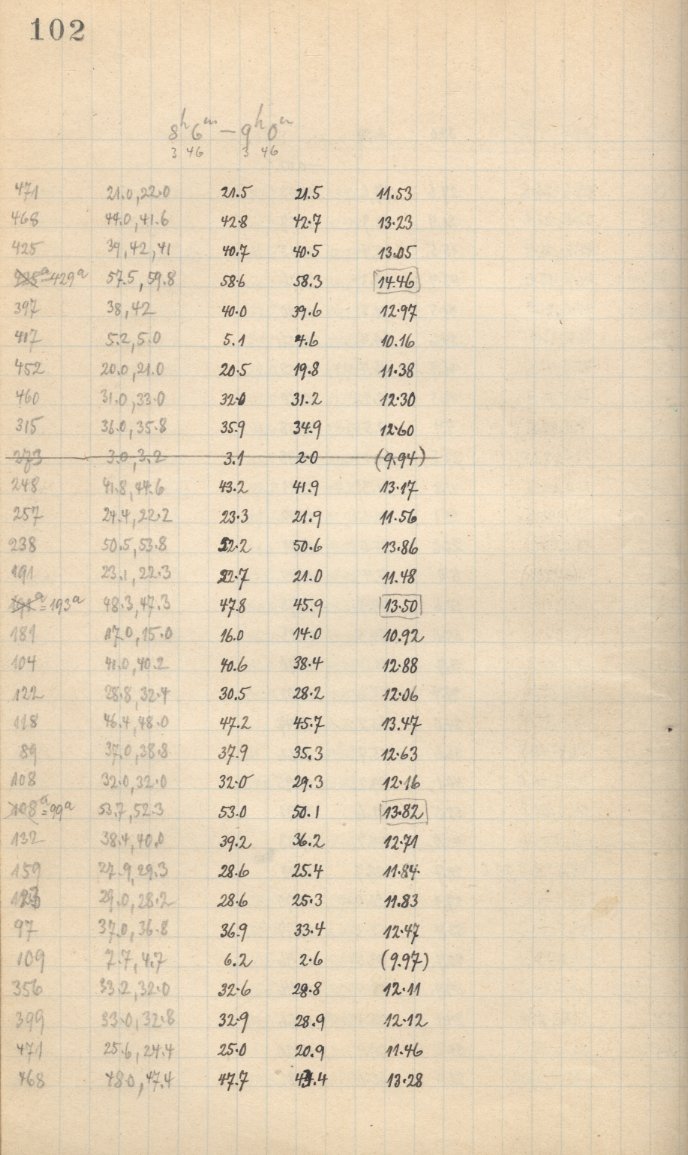 102
8h6m – 9h0m
3 46 3 46
471 21.0, 22.0 21.5 21.5 11.53
468 44.0, 41.6 42.8 42.7 13.23
425 39, 42, 41 40.7 40.5 13.05
429a 57.5, 59.8 58.6 58.3 14.46
397 38, 42 40.0 39.6 12.97
417 5.2, 5.0 5.1 4.6 10.16
452 20.0, 21.0 20.5 19.8 11.38
460 31.0, 33.0 32.0 31.2 12.30
315 36.0, 35.8 35.9 34.9 12.60
273 3.0, 3.2 3.1 2.0 (9.94)
248 41.8, 44.6 43.2 41.9 13.17
257 24.4, 22.2 23.3 21.9 11.56
238 50.5, 53.8 52.2 50.6 13.86
191 23.1, 22.3 22.7 21.0 11.48
191a = 193a 48.3, 47.3 47.8 45.9 13.50
181 17.0, 15.0 16.0 14.0 10.92
104 41.0, 40.2 40.6 38.4 12.88
122 28.8, 32.4 30.5 28.2 12.06
118 46.4, 48.0 47.2 45.7 13.47
89 37.0, 38.8 37.9 35.3 12.63
108 32.0, 32.0 32.0 29.3 12.16
108a = 99a 53.7, 52.3 53.0 50.1 13.82
132 38.4, 40.0 39.2 36.2 12.71
159 27.9, 29.3 28.6 25.4 11.84
123 29.0, 28.2 28.6 25.3 11.83
97 37.0, 36.8 36.9 33.4 12.47
109 7.7, 4.7 6.2 2.6 (9.97)
356 33.2, 32.0 32.6 28.8 12.11
399 33.0, 32.8 32.9 28.9 12.12
471 25.6, 24.4 25.0 20.9 11.46
468 48.0, 47.4 47.7 43.4 13.28